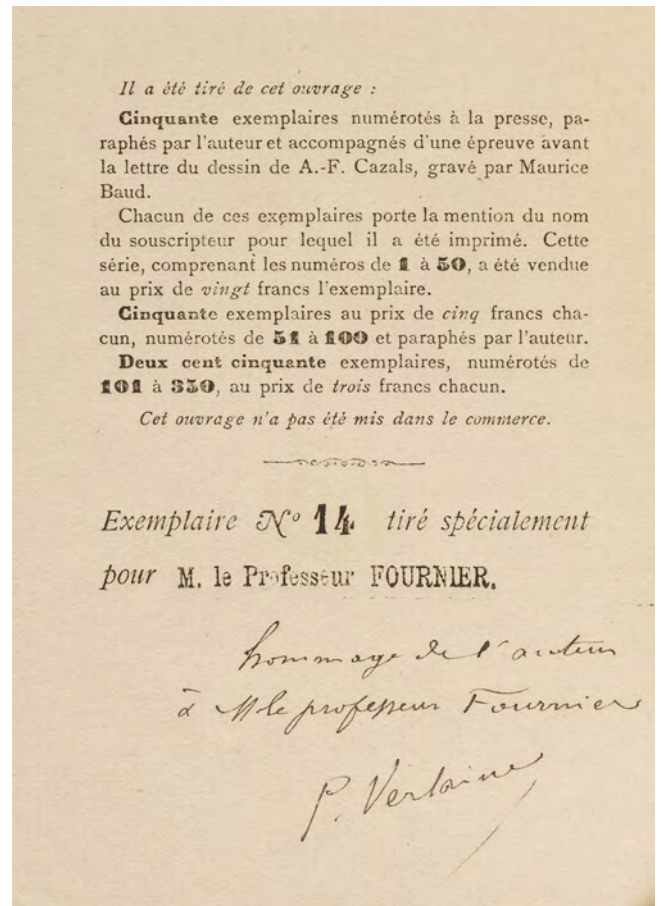 Il a été tiré de cet ouvrage :
Cinquante exemplaires numérotés à la presse, pa-
raphés par l'auteur et accompagnés d'une épreuve avant
la lettre du dessin de A.-F. Cazals, gravé par Maurice
Baud.
Chacun de ces exemplaires porte la mention du nom
du souscripteur pour lequel il a été imprimé. Cette
série, comprenant les numéros de 1 à 50, a été vendue
au prix de vingt francs l'exemplaire.
Cinquante exemplaires au prix de cinq francs cha-
cun, numérotés de 51 à 100 et paraphés par l'auteur.
Deux cent cinquante exemplaires, numérotés de
101 à 350, au prix de trois francs chacun.
Cet ouvrage n'a pas été mis dans le commerce.
Exemplaire No 14 tiré spécialement
pour M. le Professeur FOURNIER.
hommage de l'auteur
à M le professeur Fournier
P. Verlaine